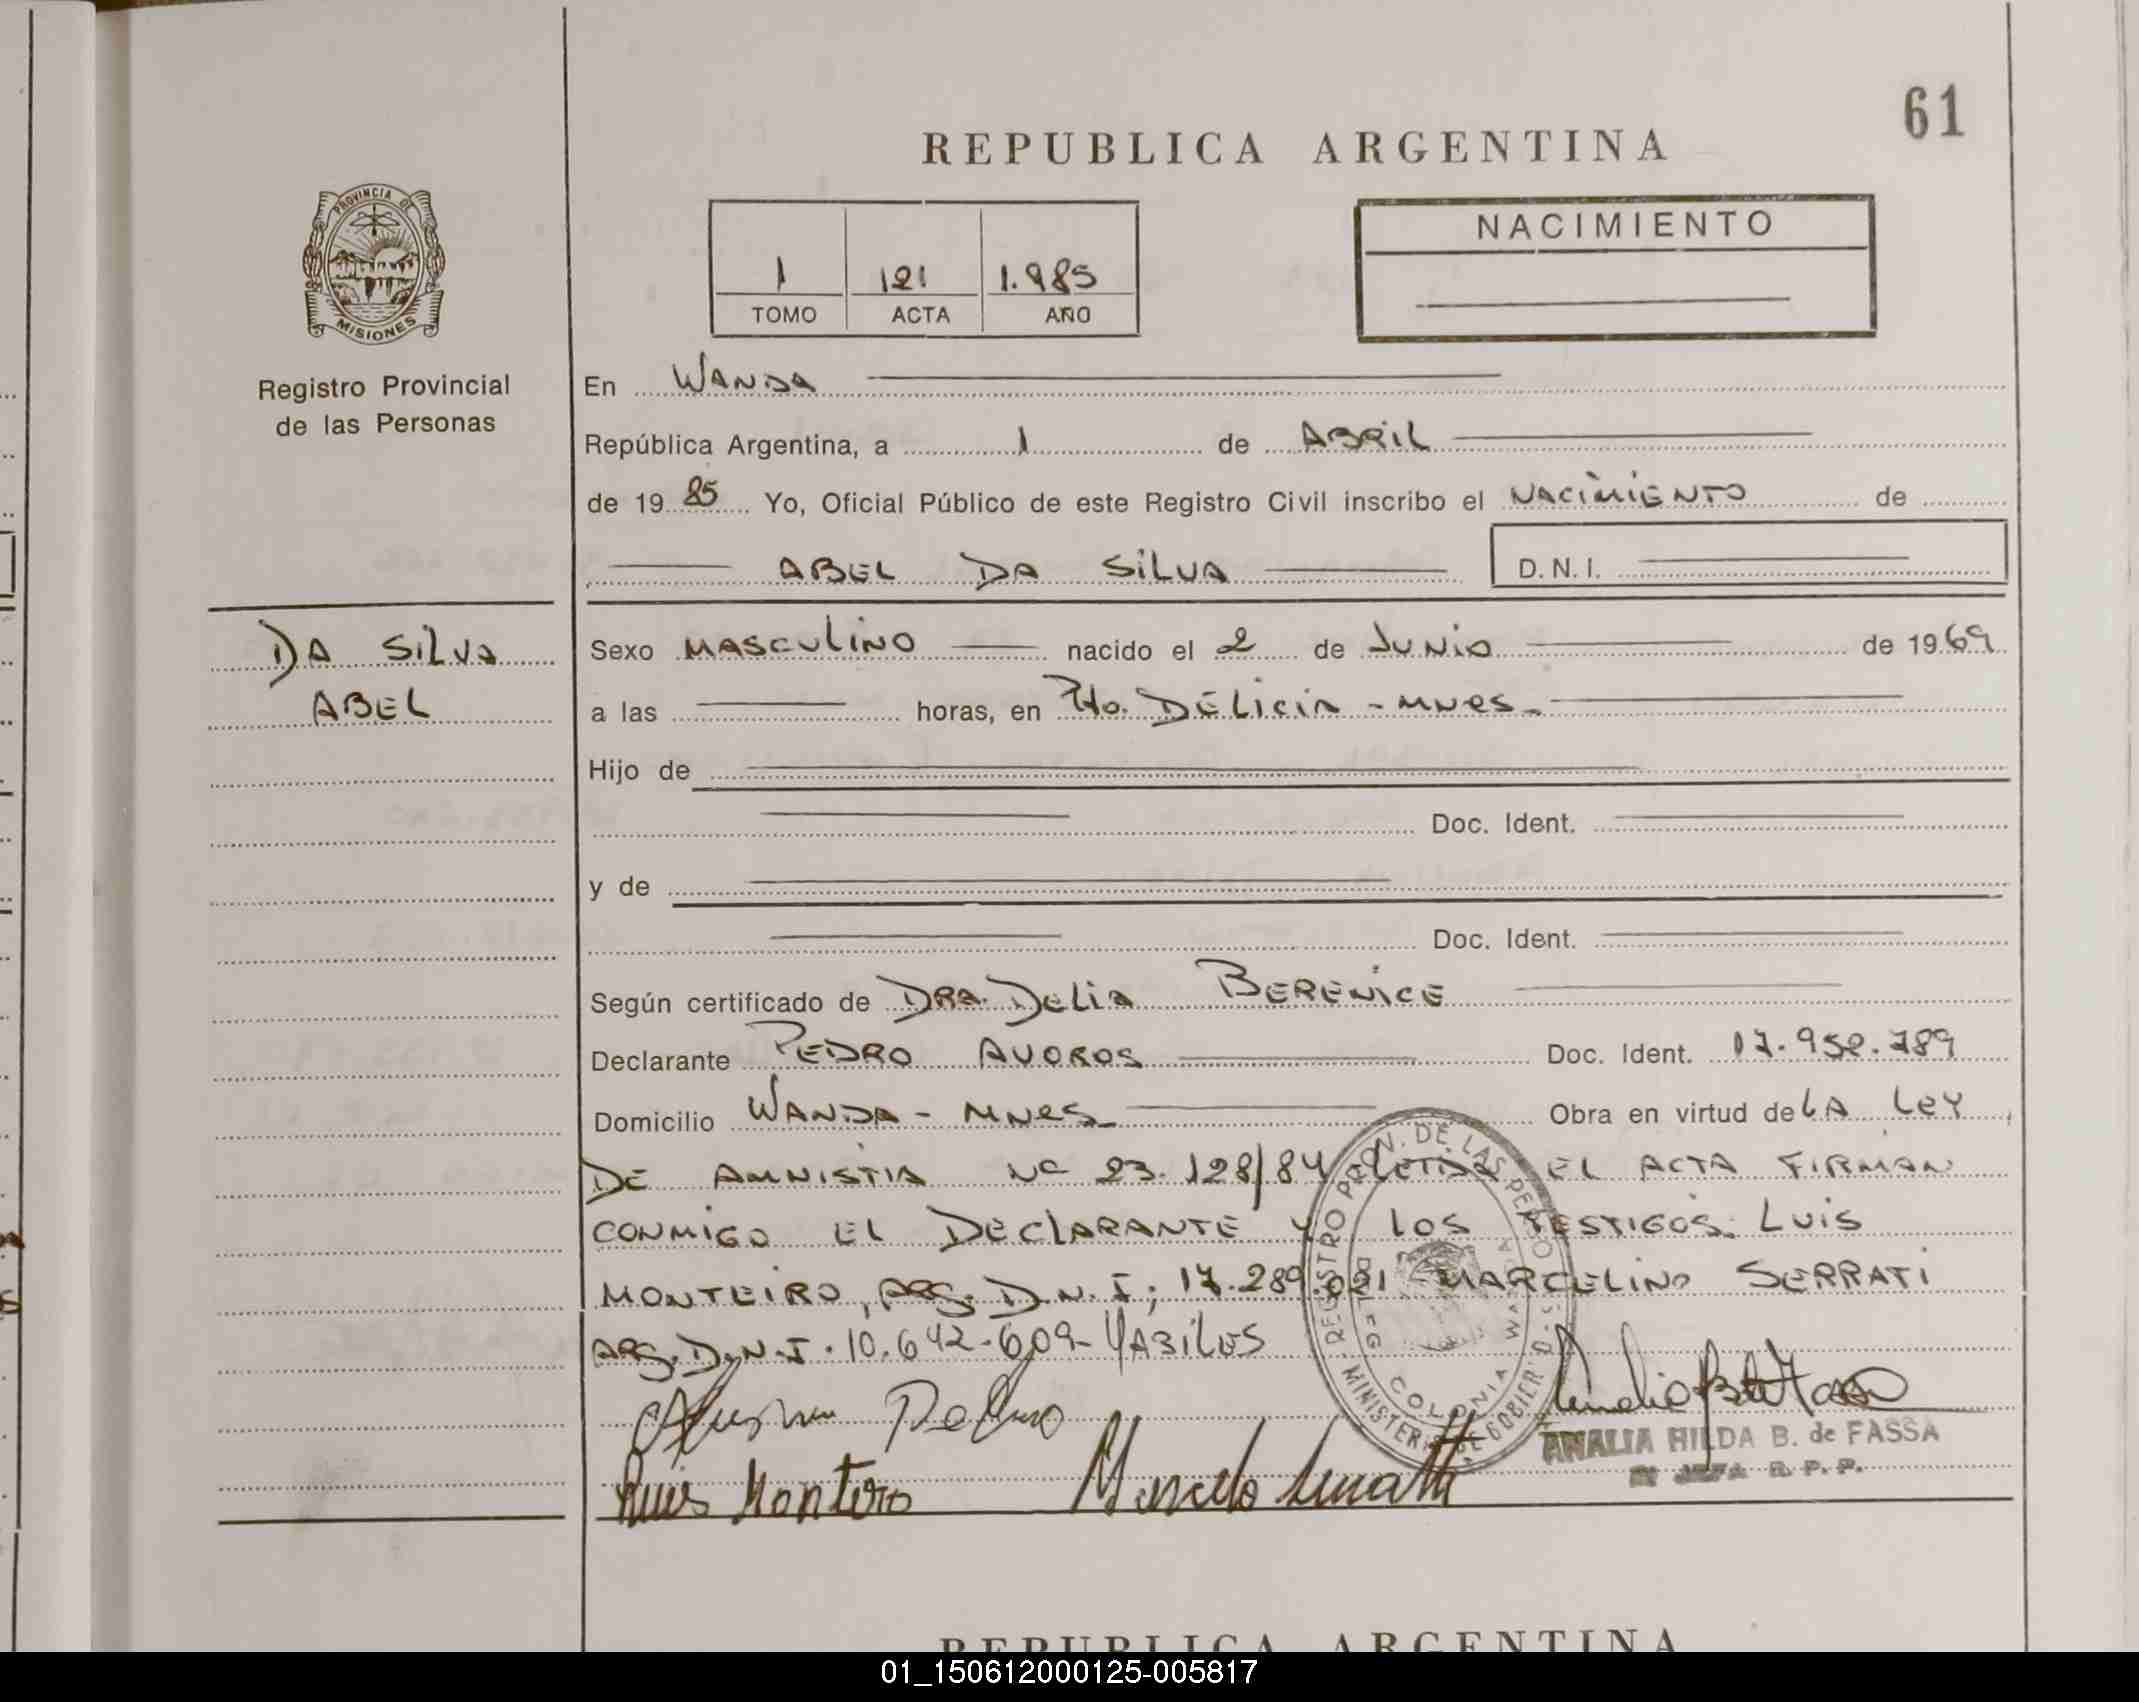 61
REPUBLICA ARGENTINA
PROVINCIA DE
MISIONES
Registro Provincial
de las Personas
1 121 1.985
TOMO ACTA AÑO
NACIMIENTO
En WANDA
República Argentina, a 1 de ABRIL
de 19 85 Yo, Oficial Público de este Registro Civil inscribo el NACIMIENTO de
ABEL DA SILVA D.N.I.
DA SILVA
ABEL
Sexo MASCULINO nacido el 2 de JUNIO de 1969
a las horas, en Pto. DELICIA - MNES-
Hijo de
Doc. Ident.
y de
Doc. Ident.
Según certificado de DRA. DELIA BERENICE
Declarante PEDRO AVOROS Doc. Ident. 17.952.789
Domicilio WANDA - MNES Obra en virtud de LA LEY
DE AMNISTIA Nº 23.128/84 LEIDA EL ACTA FIRMAN
CONMIGO EL DECLARANTE Y LOS TESTIGOS: LUIS
MONTEIRO, ARG. D.N.I; 17.289.021 MARCELINO SERRATI
ARG. D.N.I. 10.642.609-
REGISTRO PROV. DE LAS PERSONAS
MINISTERIO DE GOBIER
COLONIA WANDA
Luis Montero Marcelo
ANALIA HILDA B. de FASSA
JEFA R.P.P.
REPUBLICA ARGENTINA
01_150612000125-005817